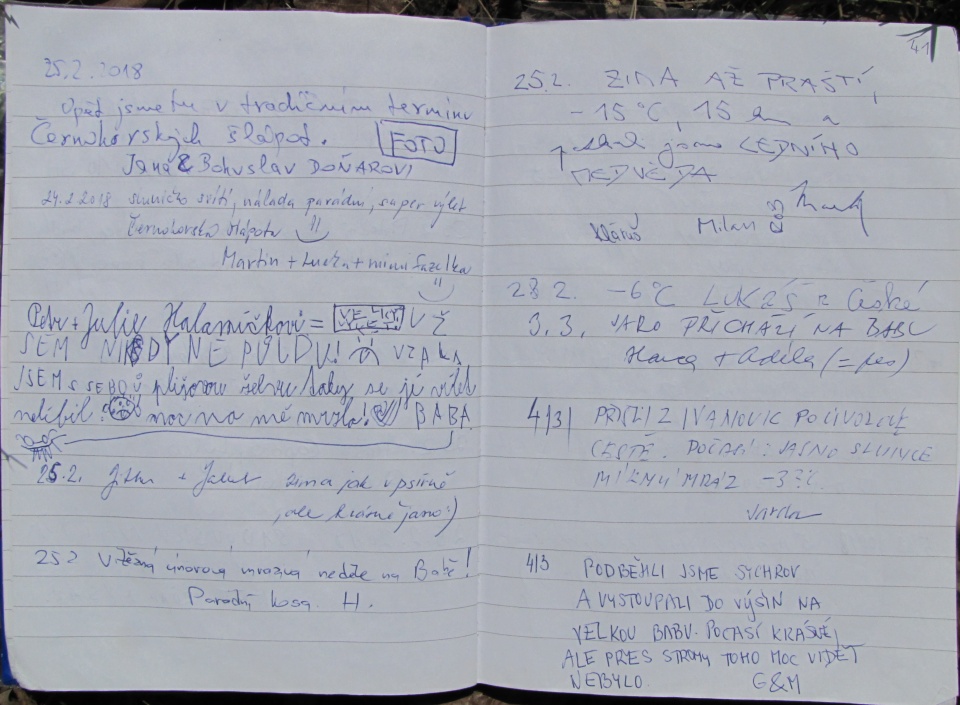 25.2.2018
Opět jsme tu v tradičním termínu
Černohorských šlápot. FOTO
Jana & Bohuslav DOŇAROVI
24.2.2018 sluníčko svítí, nálada parádní, super výlet
Černohorská šlápota
Martin + Lucka + mimi fazolka
Petr + Julie Halamíčkovi = VE ČTY UŽ
SEM NIKDY NE PŮJDU!
JSEM S SEBOU plyšovou
nelíbil. moc na mě mrzlo! BABA
25.2. Jitka + Jakub zima jak v psírně
, ale krásně jasno :)
25.2 Vítězná únorová mrazivá neděle na Babě!
Parádní kosa. H.
41
25.2. ZIMA AŽ PRAŠTÍ,
-15°C, 15 km a
potkali jsme LEDNÍHO
MEDVĚDA
Milan
28 2. -6°C LUKÁŠ z České
3.3. JARO PŘICHÁZÍ NA BABU
Hanca + Adéla (= pes)
4/3/ PŘIŠLI Z IVANOVIC PO
CESTĚ. POČASÍ: JASNO SLUNCE
MÍRNÝ MRÁZ -3°C.
Jarda
4/3 PODBĚHLI JSME SYCHROV
A VYSTOUPALI DO VÝŠIN NA
VELKOU BABU. POČASÍ KRÁSNÉ,
ALE PŘES STROMY TOHO MOC VIDĚT
NEBYLO. G&M